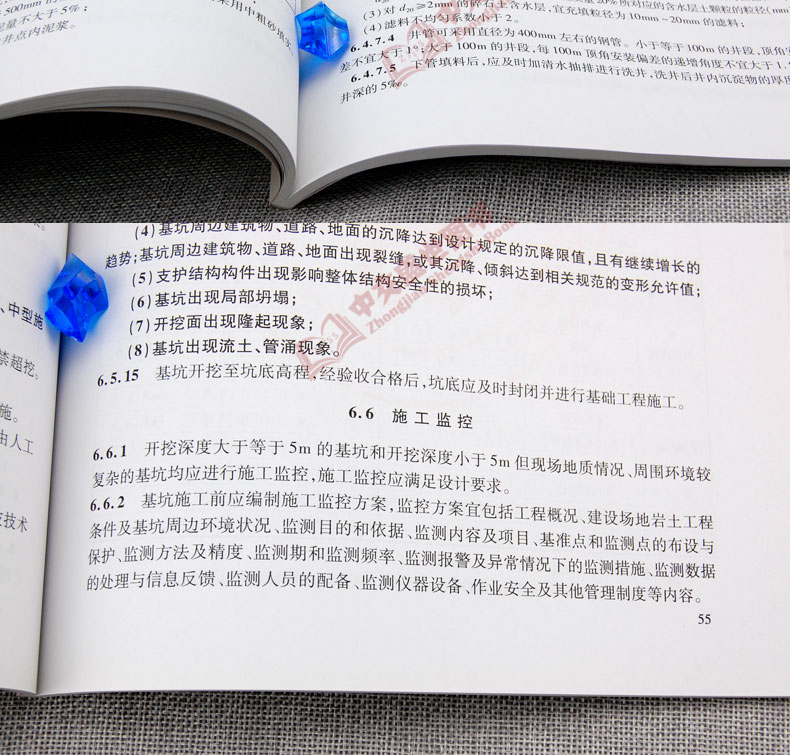 500mm的
泥量不大于5%;
井点内泥浆。
采用中粗砂填实
(3)对 d20≥2mm 的碎石土含水层,宜充填粒径为 10mm~20mm 的滤料;
(4)滤料不均匀系数小于2。
6.4.7.4 井管可采用直径为 400mm 左右的钢管。小于等于 100m 的井段,顶角
差不宜大于 1°,大于 100m 的井段,每 100m 顶角安装偏差的递增角度不宜大于 1.
6.4.7.5 下管填料后,应及时加清水抽排进行洗井,洗井后井内沉淀物的厚度
井深的 5‰。
、中型施
禁超挖。
施。
由人工
技术
(4)基坑周边建筑物、道路、地面的沉降达到设计规定的沉降限值,且有继续增长的
趋势;基坑周边建筑物、道路、地面出现裂缝,或其沉降、倾斜达到相关规范的变形允许值;
(5)支护结构构件出现影响整体结构安全性的损坏;
(6)基坑出现局部坍塌;
(7)开挖面出现隆起现象;
(8)基坑出现流土、管涌现象。
6.5.15 基坑开挖至坑底高程,经验收合格后,坑底应及时封闭并进行基础工程施工。
6.6 施工监控
6.6.1 开挖深度大于等于 5m 的基坑和开挖深度小于 5m 但现场地质情况、周围环境较
复杂的基坑均应进行施工监控,施工监控应满足设计要求。
6.6.2 基坑施工前应编制施工监控方案,监控方案宜包括工程概况、建设场地岩土工程
条件及基坑周边环境状况、监测目的和依据、监测内容及项目、基准点和监测点的布设与
保护、监测方法及精度、监测期和监测频率、监测报警及异常情况下的监测措施、监测数据
的处理与信息反馈、监测人员的配备、监测仪器设备、作业安全及其他管理制度等内容。
55